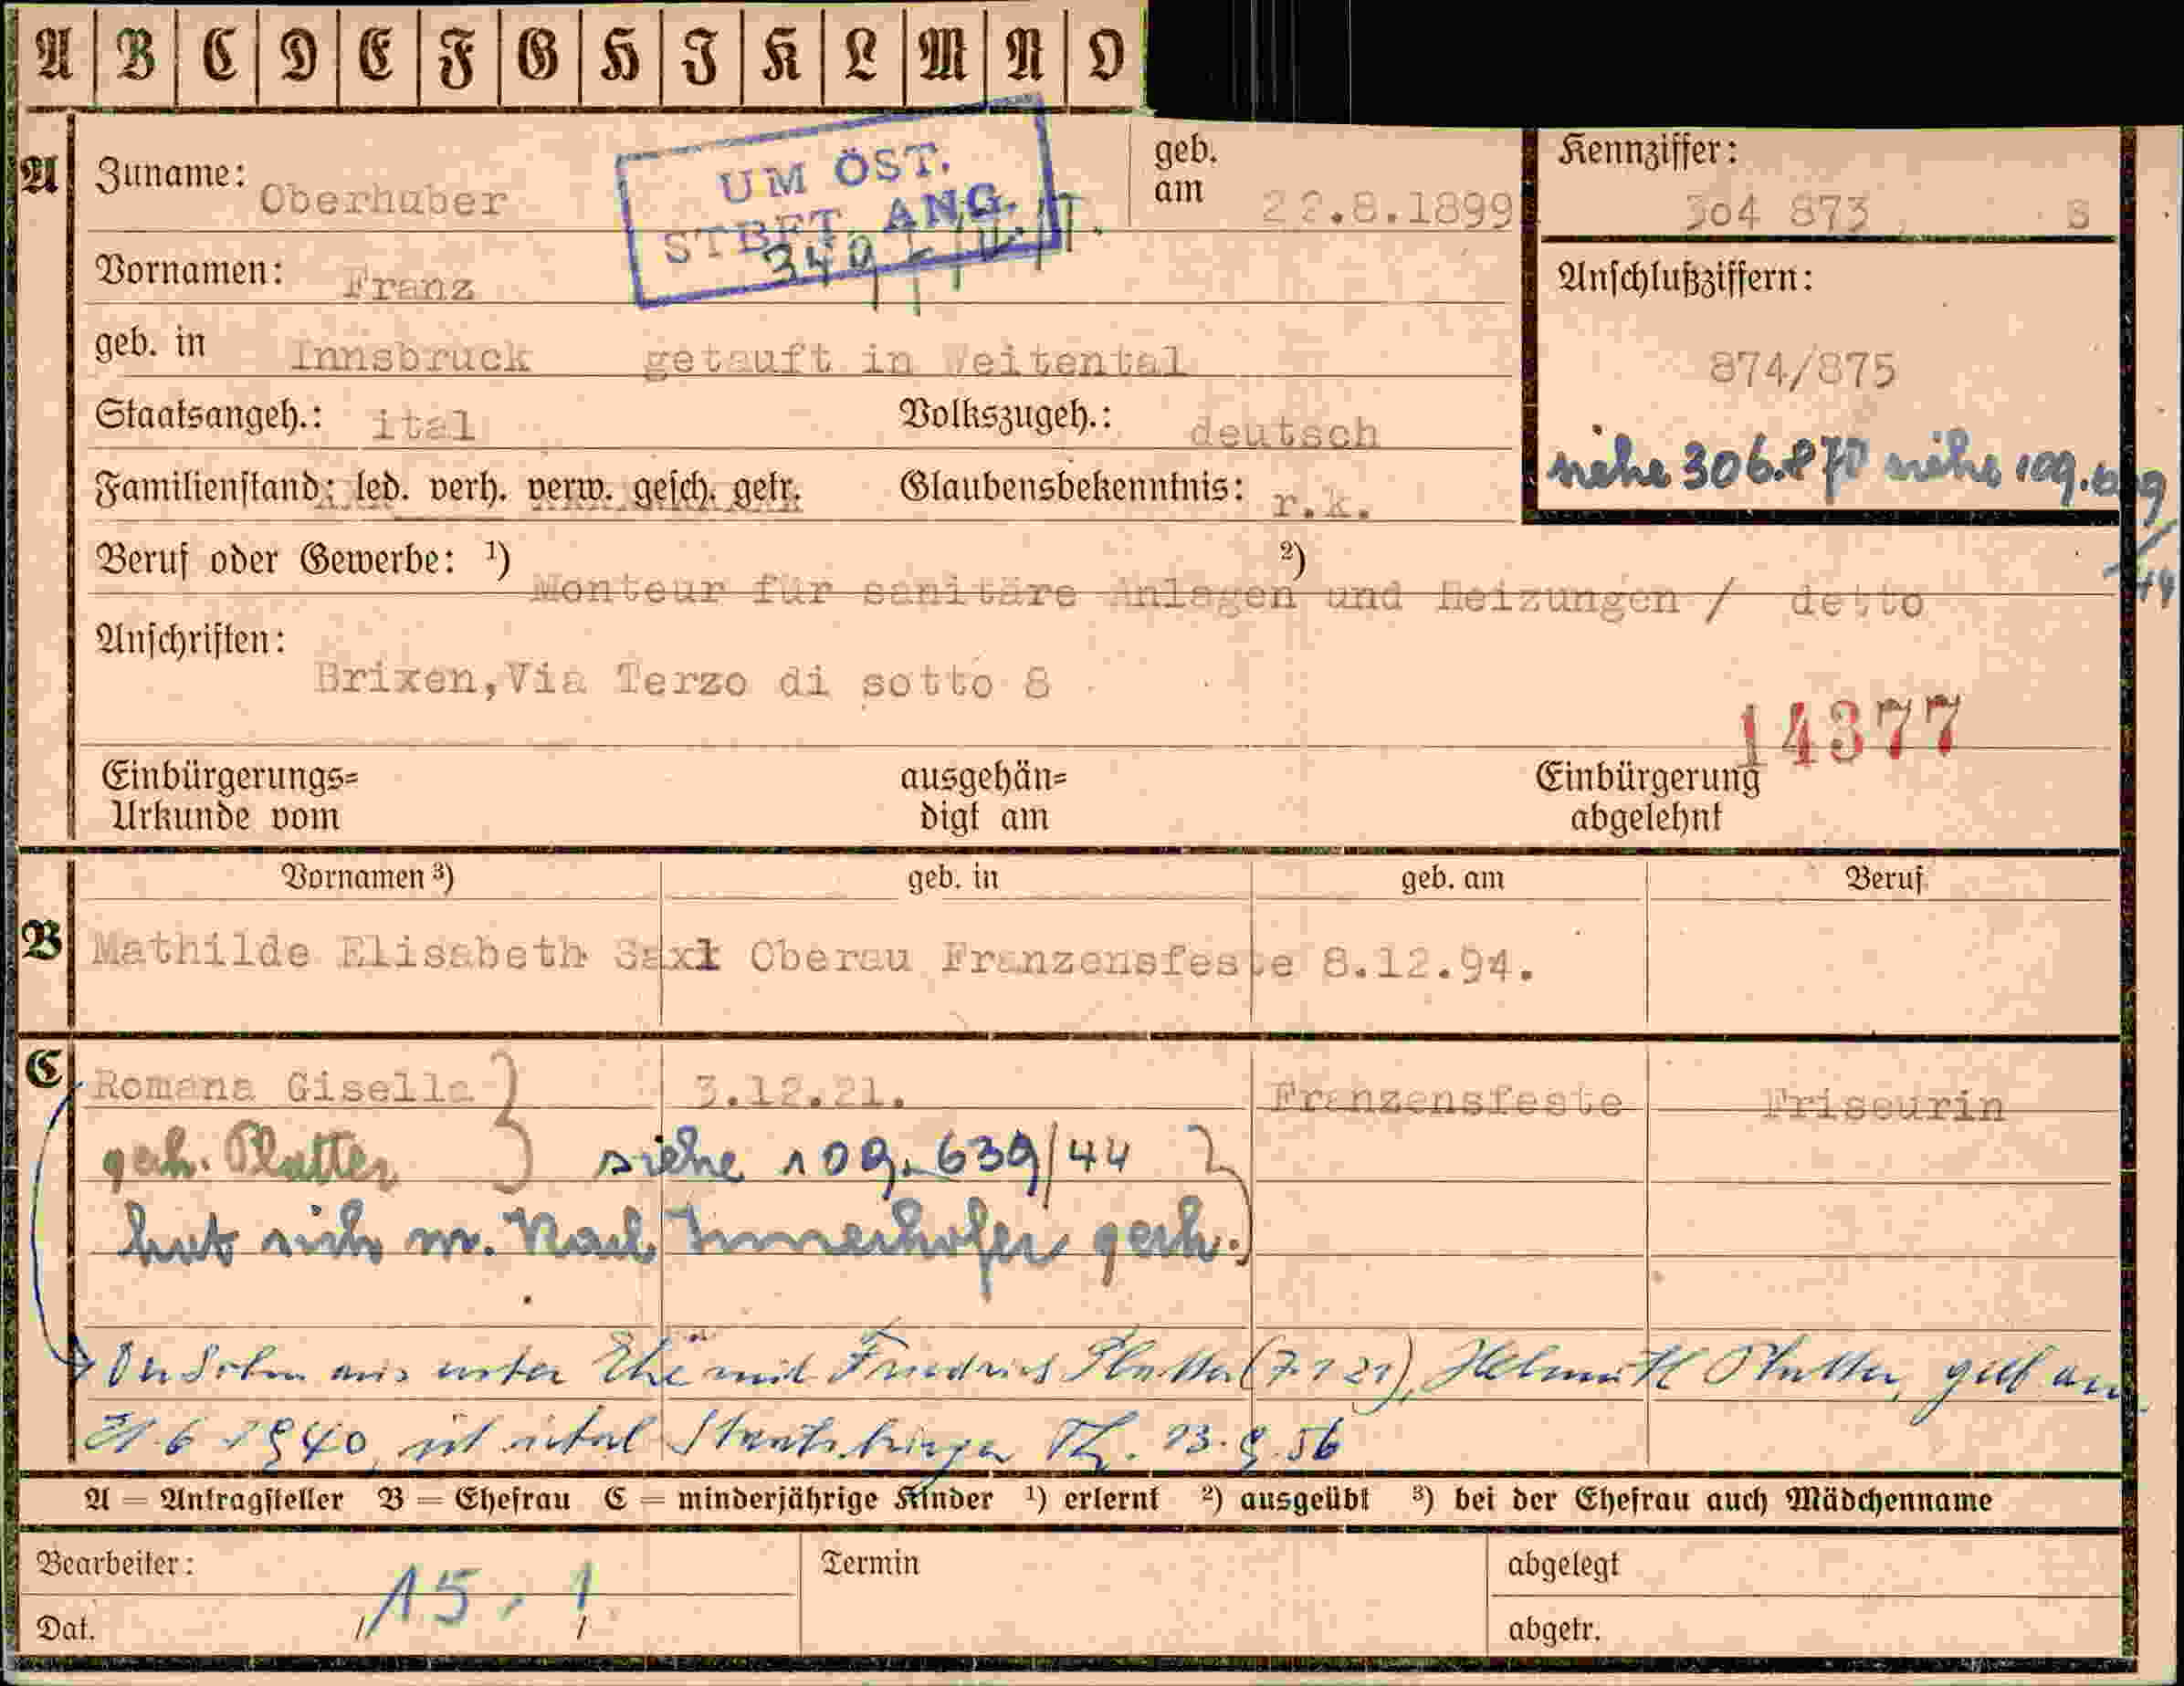 A B C D E F G H I K L M N O
A Zuname: Oberhuber geb. am 22.8.1899 Kennziffer: 304 873 S
UM ÖST.
STBFT. ANG.
Vornamen: Franz Anschlußziffern:
geb. in Innsbruck getauft in Weitental 874/875
Staatsangeh.: ital Volkszugeh.: deutsch
siehe 306.870 siehe 109.639/44
Familienstand: led. verh. verw. gesch. getr. Glaubensbekenntnis: r.k.
Beruf oder Gewerbe: ¹) Monteur für sanitäre Anlagen und Heizungen / ²) detto
Anschriften:
Brixen, Via Terzo di sotto 8
14377
Einbürgerungs= ausgehän= Einbürgerung
Urkunde vom digt am abgelehnt
Vornamen ³) geb. in geb. am Beruf
B Mathilde Elisabeth Saxl Oberau Franzensfeste 8.12.94.
C Romana Gisella 3.12.21. Franzensfeste Friseurin
geh. Platter siehe 109.639/44
hat sich m. Karl Innerhofer geh.
Der Sohn aus erster Ehe mit Friedrich Platter (7.1.21), Helmuth Platter, geb am
31.6.1940, ist ital Staatsbürger 13.9.56
A = Antragsteller B = Ehefrau C = minderjährige Kinder ¹) erlernt ²) ausgeübt ³) bei der Ehefrau auch Mädchenname
Bearbeiter: Termin abgelegt
15. 1
Dat. abgetr.